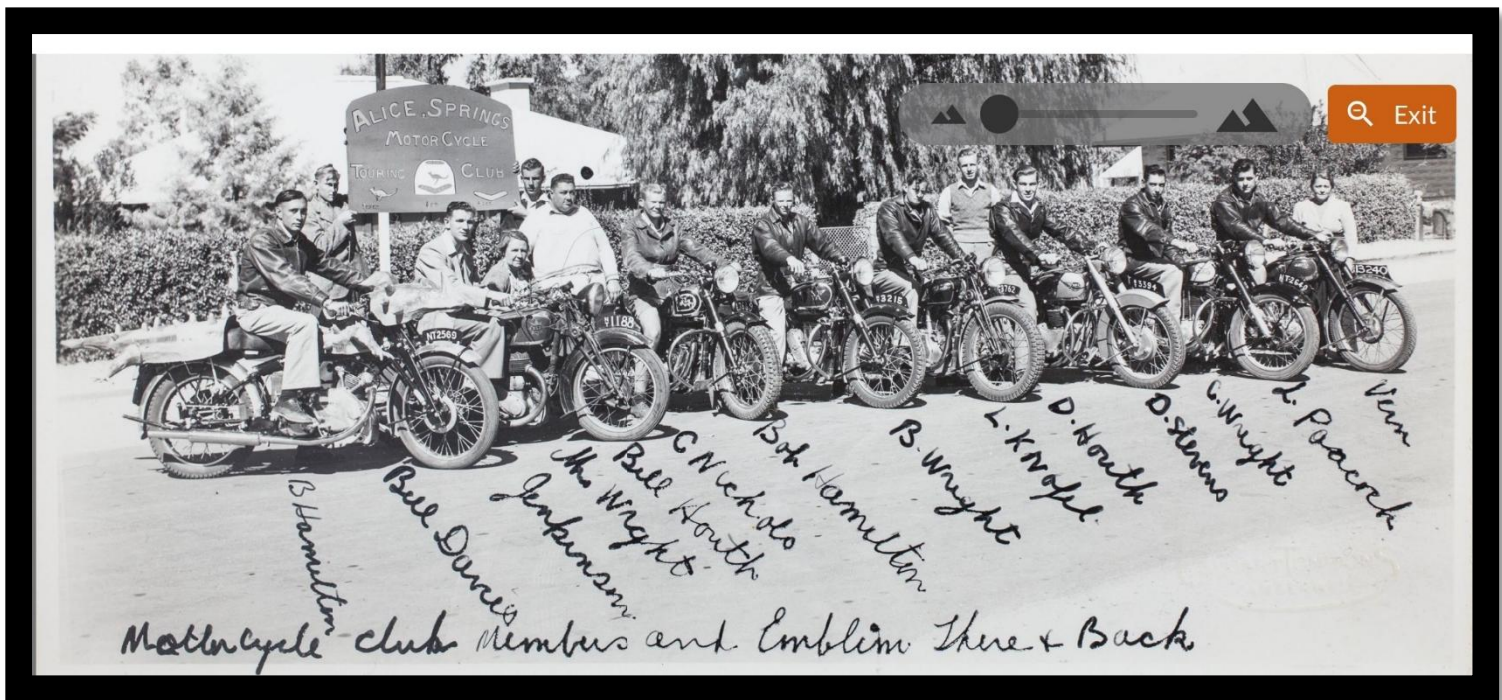 ALICE SPRINGS
MOTOR CYCLE
TOURING CLUB
Exit
NT2569
1188
3215
3762
13394
NT2644
13240
B Hamilton
Bill Davies
Jenkinson
Mrs Wright
Bill Houth
C Nicholo
Bob Hamilton
B. Wright
L. Knofel.
D. Houth
D. Stevens
G. Wright.
L. Poacock
Vern
Mottorcycle club Members and Emblim There & Back